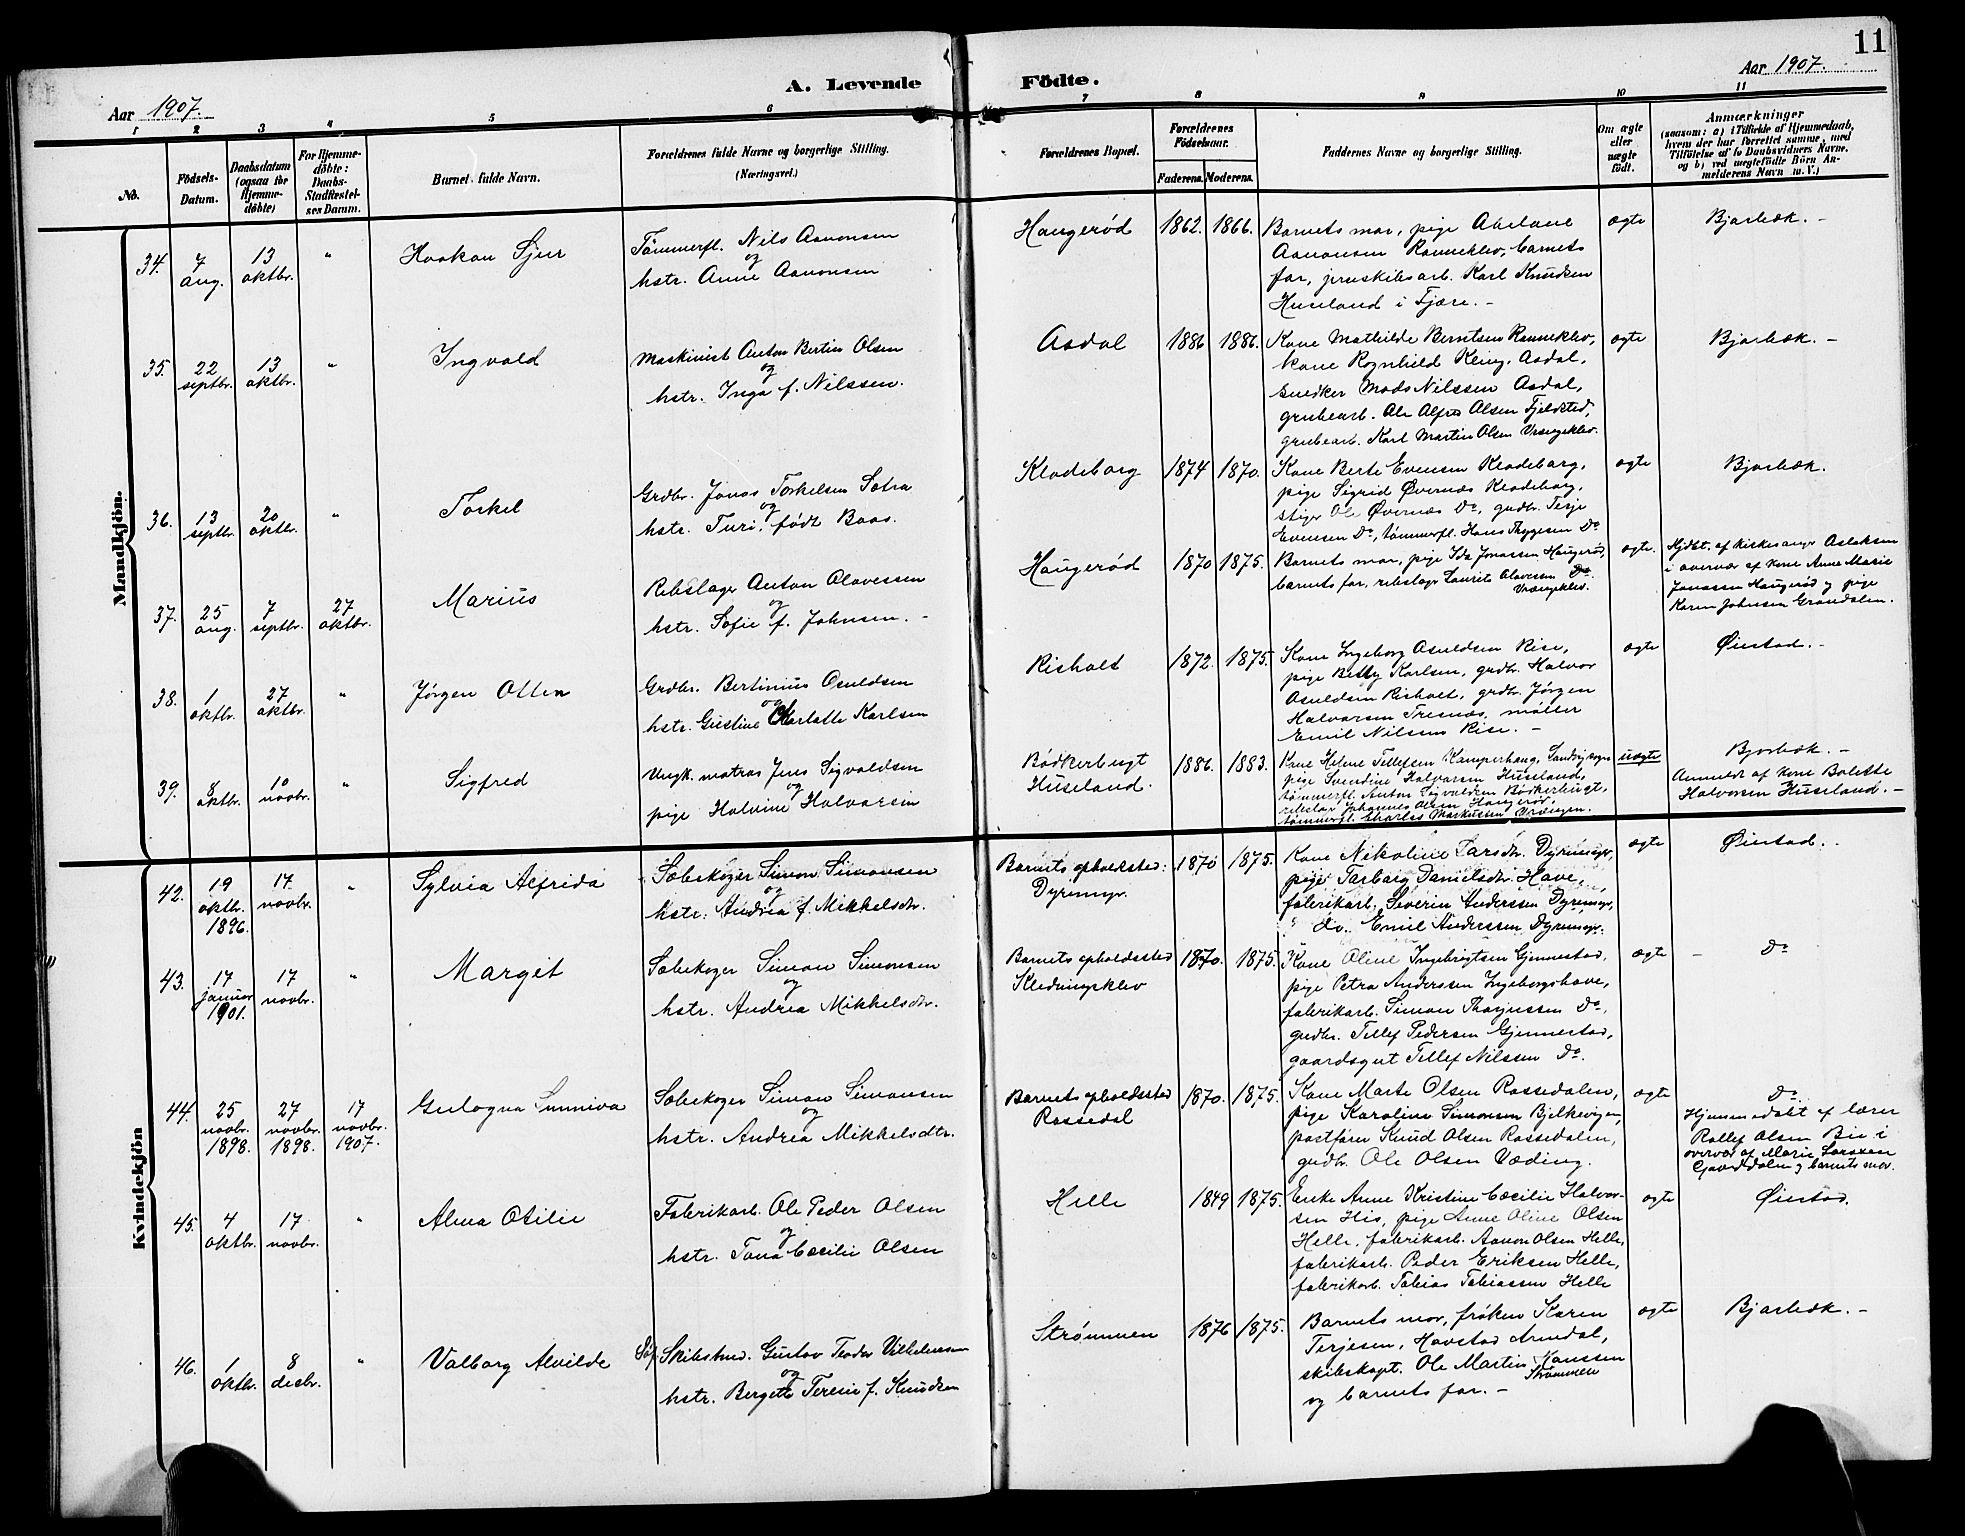 11
Aar 1907.
A. Levende
Födte.
Aar 1907.
1 2 3 4 5 6 7 8 9 10 11
No.
Födsels-
Datum.
Daabsdatum
(ogsaa for
Hjemme-
döbte)
For Hjemme-
döbte:
Daabs-
Stadfæstel-
ses Datum.
Barnet fulde Navn.
Forældrenes fulde Navne og borgerlige Stilling.
(Næringsvei.)
Forældrenes Bopæl.
Forældrenes
Födselsaar.
Faderens. Moderens.
Faddernes Navne og borgerlige Stilling.
Om ægte
eller
uægte
födt.
Anmærkninger
(saasom: a) i Tilfælde af Hjemmedaab,
hvem der har forrettet samme, med
Tilföielse af to Daabsvidners Navne.
og b) ved uægtefödte Börn An-
melderens Navn m. V.)
Mandkjön.
34. 7 aug. 13 oktbr. "
Haakon Sjur
Tømmerfl. Nils Aanonsen
og
hstr. Anne Aanonsen
Haugerød 1862. 1866.
Barnets mor, pige Abelone
Aanonsen Rannekleo, barnets
far, jernskibsarb. Karl Knudsen
Huseland i Fjære. -
ægte
Bjorbæk. -
35. 22 septbr. 13 oktbr. "
Ingvald
Maskinist Anton Bertin Olsen
og
hstr. Inga f. Nilssen.
Asdal 1886 1886.
Kone Mathilde Berntsen Ranneklev,
kone Ragnhild Kling, Asdal,
snedker Mads Nilssen Asdal,
grubearb. Ole Alfred Olsen Fjeldsted,
grubearb. Karl Martin Olsen Vrængeklev.
ægte
Bjorbæk. -
36. 13 septbr. 20 oktbr. "
Torkel
Grdbr. Jonas Torkelsen Sætra
og
hstr. Turi, født Baas.
Klodeborg 1874 1870.
Kone Berte Evensen Klodeborg,
pige Sigrid Øvernæs Klodeborg,
stiger Ole Øvernæs Do, grdbr. Terje
Evensen Do, tømmerfl. Hans Thygesen Do
ægte
Bjorbæk.
37. 25 aug. 7 septbr. 27 oktbr.
Marius
Rebslager Anton Olavessen
og
hstr. Sofie f. Johnsen. -
Haugerød 1870 1875.
Barnets mor, pige Ida Jonassen Haugerød,
barnets far, rebslager Laurits Olavessen
Vrængeklev.
ægte.
Hjdbt. af kirkesanger Aslaksen
i overvær af kone Anne Marie
Jonassen Haugerød og pige
Karen Johnsen Grandalen.
38. 1 oktbr. 27 oktbr. "
Jørgen Otten
Grdbr. Bertinius Osuldsen
og
hstr. Gustine Charlotte Karlsen
Risholt 1872. 1875.
Kone Ingeborg Osuldsen Rise,
pige Betty Karlsen, grdbr. Halvor
Osuldsen Risholt, grdbr. Jørgen
Halvorsen Tresnæs, møller
Emil Nilsen Rise. -
ægte
Øiestad. -
39. 8 oktbr. 10 novbr. "
Sigfred
Ungk. matros Jens Sigvaldsen
og
pige Halvine Halvorsen
Bødkerbugt
Huseland.
1886. 1883.
Kone Helene Tellefsen Kamperhaug,
pige Svendine Halvorsen Huseland,
tømmerfl. Anton Sigvaldsen Bødkerbugt,
rebslag. Johannes Olsen Haugerød,
tømmerfl. Charles Markussen Vrængen.
uægte
Bjorbæk. -
Anmeldt af kone Bolette
Halvorsen Huseland. -
Kvindekjön
42. 19 oktbr. 1896. 17 novbr. "
Sylvia Alfrida
Sæbekoger Simon Simonsen
og
hstr. Andrea f. Mikkelsdtr.
Barnets opholdssted:
Dyremyr.
1870 1875.
Kone Nikoline Larsdtr. Dyremyr,
pige Tarbarg Danielsdtr. Have,
fabrikarb. Severin Anderssen Dyremyr,
" do. Emil Anderssen Dyremyr.
ægte
Øiestad. -
43. 17 januar 1901. 17 novbr. "
Margit
Sæbekoger Simon Simonsen
og
hstr. Andrea Mikkelsdtr.
Barnets opholdssted
Klodningsklev
1870. 1875.
Kone Oline Ingebrigtsen Gjennestad,
pige Petra Anderssen Ingeborgshave,
fabrikarb. Simon Thorjussen Do,
grdbr. Tellef Pedersen Gjennestad,
gaardsgut Tellef Nilssen Do.
ægte
- Do
44. 25 novbr. 1898. 27 novbr. 1898. 17 novbr. 1907.
Gulogna Sunniva
Sæbekoger Simon Simonsen
og
hstr. Andrea Mikkelsdtr.
Barnets opholdssted
Rossedal
1870. 1875.
Kone Marte Olsen Rossedalen,
pige Karoline Simonsen Bjelkevigen,
postfører Knud Olsen Rossedalen,
grdbr. Ole Olsen Væding.
ægte
Do
Hjemmedøbt af lærer
Rollef Olsen Bie i
overvær af Marie Larssen
og barnets mor.
45. 4 oktbr. 17 novbr. "
Alma Otilie
Fabrikarb. Ole Peder Olsen
og
hstr. Tona Cæcilie Olsen
Helle 1849 1875.
Enke Anne Kristine Cæcilie Halvor-
sen His, pige Anne Oline Olsen
Helle, fabrikarb. Aanon Olsen Helle,
fabrikarb. Peder Eriksen Helle,
fabrikarb. Tobias Tobiassen Helle
ægte
Øiestad.
46. 1 oktbr. 8 decbr. "
Valborg Alvilde
Skibstmd. Gustav Teodor Vilhelmsen
og
hstr. Bergette Teresie f. Knudsen
Strømmen 1876 1875.
Barnets mor, frøken Karen
Terjesen, Havstad Arendal,
skibskapt. Ole Martin Hanssen
Strømmen
og barnets far. -
ægte
Bjorbæk. -